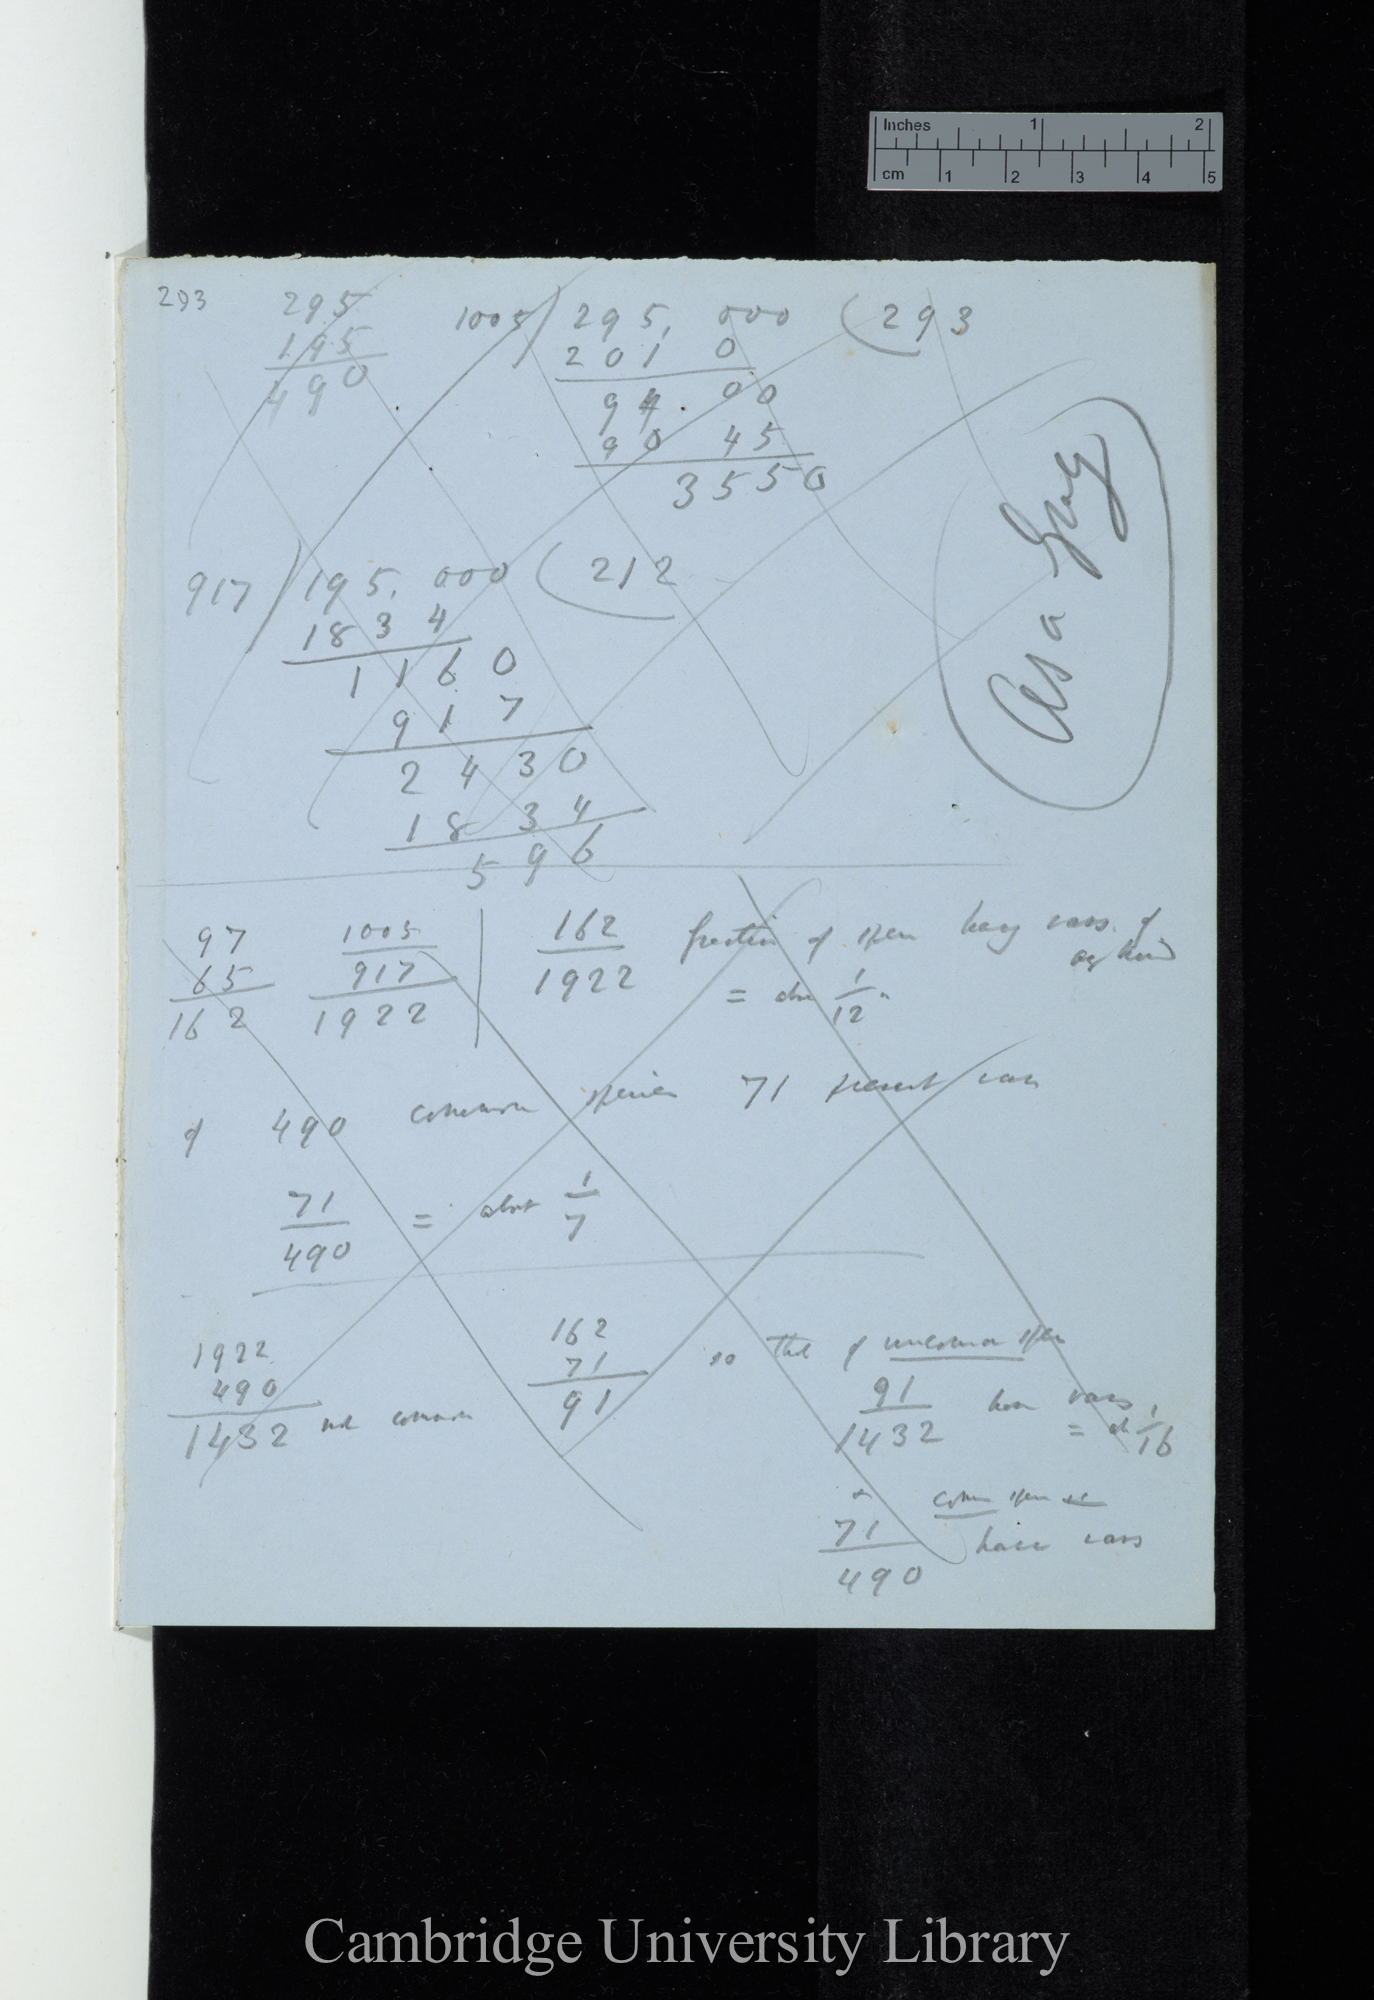 Inches 1 2
cm 1 2 3 4 5
293
295
195
490
1005) 295,000 (293
201 0
94.00
90 45
3550
Asa Gray
917) 195,000 (212
1834
1160
917
2430
1834
596
97
65
162
1005
917
1922
162
1922
fraction of spec having vars. of
any kind
= abt 1/12.
of 490 common species 71 present vars
71
490
= about 1/7
1922
490
1432 not common
162
71
91
so that of uncommon spec
91
1432
have vars
= abt 1/16
+
71
490
common spec
have vars
Cambridge University Library